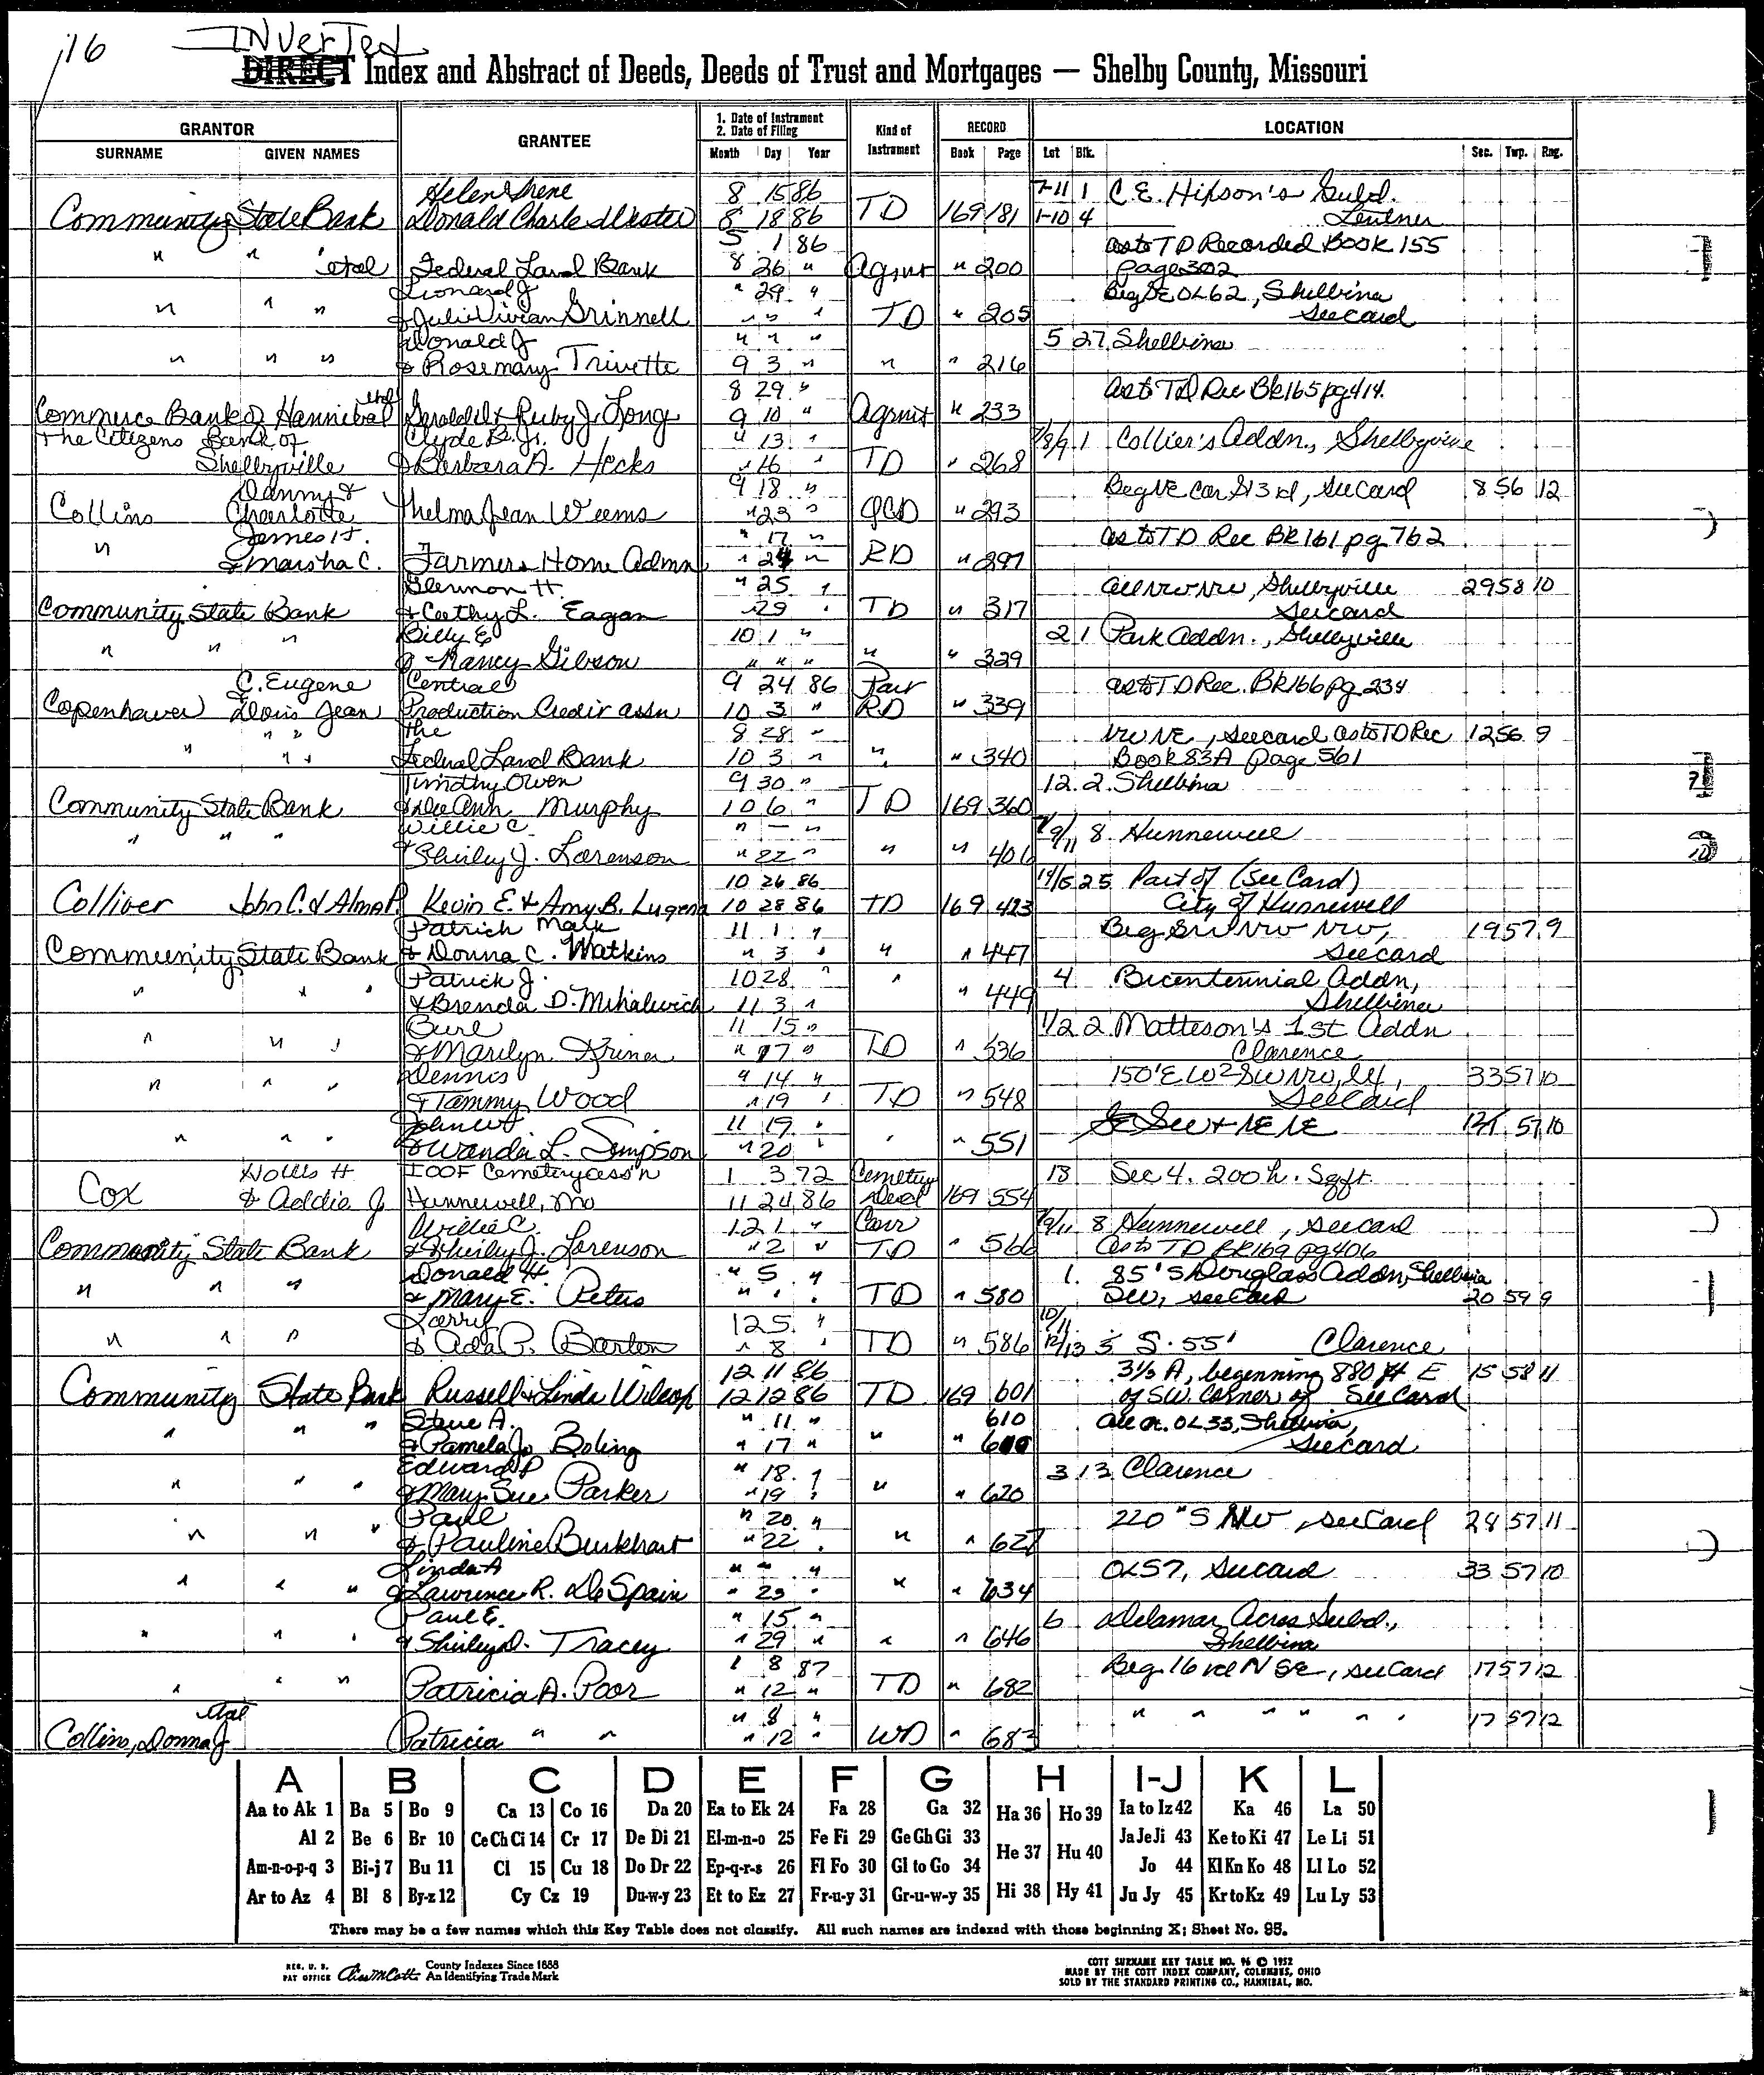 16
Inverted
DIRECT Index and Abstract of Deeds, Deeds of Trust and Mortgages — Shelby County, Missouri
GRANTOR GRANTEE 1. Date of Instrument 2. Date of Filing Kind of Instrument RECORD LOCATION
SURNAME GIVEN NAMES Month Day Year Book Page Lot Blk. Sec. Twp. Rng.
Helen Irene 8 15 86 7-11 1 C.E. Hipson's Subd.
Community State Bank Donald Charle 8 18 86 TD 169 181 1-10 4 Lentner
5 1 86 as to TD Recorded Book 155
" " etal Federal Land Bank 8 26 " Agmt " 200 page 302
Leonard J " 29 " Beg SE OL62, Shelbina
" " " & Julie Vivian Grinnell " " " TD " 205 see card
Donald J " " " 5 27 Shelbina
" " " & Rosemary Trivette 9 3 " " " 216
etal 8 29 " as to TD Rec Bk 165 pg 414.
Commerce Bank of Hannibal & Ruby J. Long 9 10 " Agmt " 233
The Citizens Bank of Clyde B. Jr. " 13 " 7/8/9 1 Collier's Addn., Shelbyville
Shelbyville & Barbara A. Hecks " 16 " TD " 268
Danny & 9 18 " Beg NE cor St 3 rd, see card 8 56 12
Collins Charlotte Thelma Jean Weems " 23 " QCD " 293
James H. " 17 " as to TD Rec Bk 161 pg 762
" & Marsha C. Farmers Home Admn " 24 " RD " 297
Glennon H. " 25 " all NW NW, Shelbyville 29 58 10
Community State Bank & Cathy L. Eagan " 29 " TD " 317 see card
Billy E 10 1 " 2 1 Park Addn., Shelbyville
" " " & Nancy Gibson " " " " " 329
C. Eugene Central 9 24 86 Part as to TD Rec. Bk 166 pg 234
Copenhaver Lois Jean Production Credit assn 10 3 " RD " 339
" " The 8 28 " NW NE, see card as to TD Rec 12 56 9
" " " Federal Land Bank 10 3 " " " 340 Book 83A page 561
Timothy Owen 9 30 " 12 2 Shelbina
Community State Bank & Lee Ann Murphy 10 6 " TD 169 360
Willie C. " — " 9/11 8 Hunnewell
" " " & Shirley J. Lorenson " 22 " " " 406
10 26 86 14/15 25 Part of (See Card)
Colliver John C. & Alma P. Kevin E. & Amy B. Lugena 10 28 86 TD 169 423 City of Hunnewell
Patrick Mark 11 1 " Beg SW NW NW, 19 57 9
Community State Bank & Donna C. Watkins " 3 " " " 447 see card
Patrick J. 10 28 " 4 Bicentennial Addn,
" " " & Brenda D. Mihalevich 11 3 " " " 449 Shelbina
Burl 11 15 " 1/2 2 Matteson's 1st Addn
" " " & Marilyn Kriner " 17 " TD " 536 Clarence
Dennis " 14 " 150' E W2 SW NW, 33 57 10
" " " & Tammy Wood " 19 " TD " 548 see card
John W 11 19 " 57 10
" " " & Wanda L. Simpson " 20 " " " 551
Hollis H IOOF Cemetery ass'n 1 3 72 Cemetery 13 Sec 4. 200 h. Sqft.
Cox & Addie J Hunnewell, Mo 11 24 86 Deed 169 554
Willie C. 12 1 " Corr 9/11 8 Hunnewell, see card
Community State Bank & Shirley J. Lorenson " 2 " TD " 566 as to TD BK 169 pg 406
Donald H. " 5 " 1. 85' S Douglass Addn, Shelbina
" " " & Mary E. Peters " " " TD " 580 SW, see card 20 59 9
Larry 12 5 " 10/11
" " " & Ada P. Barton " 8 " TD " 586 12/13 3 S. 55' Clarence
12 11 86 3½ A, beginning 880 ft E 15 58 11
Community State Bank Russell & Linda Wilcox 12 12 86 TD 169 601 of SW. Corner of See Card
Steve A. " 11 " 610 OL 33, Shelbina,
" " " & Pamela Jo Boling " 17 " " " see card
Edward P " 18 " 3 13 Clarence
" " " & Mary Sue Parker " 19 " " " 620
Paul " 20 " 220 " S NW, see card 28 57 11
" " " & Pauline Burkhart " 22 " " " 627
Linda A " " " OL57, see card 33 57 10
" " " & Lawrence R. DeSpain " 23 " " " 634
Paul E. " 15 " 6 Delamar Acres Subd.,
" " " & Shirley D. Tracey " 29 " " " 646 Shelbina
1 8 87 Beg 16 rd N SE, see card 17 57 12
" " " Patricia A. Poor " 12 " TD " 682
etal " 8 " " " " " " " 17 57 12
Collins, Donna J Patricia " " " 12 " WD " 683
A B C D E F G H I-J K L
Aa to Ak 1 Ba 5 Bo 9 Ca 13 Co 16 Da 20 Ea to Ek 24 Fa 28 Ga 32 Ha 36 Ho 39 Ia to Iz 42 Ka 46 La 50
Al 2 Be 6 Br 10 Ce Ch Ci 14 Cr 17 De Di 21 El-m-n-o 25 Fe Fi 29 Ge Gh Gi 33 He 37 Hu 40 Ja Je Ji 43 Ke to Ki 47 Le Li 51
Am-n-o-p-q 3 Bi-j 7 Bu 11 Cl 15 Cu 18 Do Dr 22 Ep-q-r-s 26 Fl Fo 30 Gl to Go 34 Jo 44 Kl Kn Ko 48 Ll Lo 52
Ar to Az 4 Bl 8 By-z 12 Cy Cz 19 Du-w-y 23 Et to Ez 27 Fr-u-y 31 Gr-u-w-y 35 Hi 38 Hy 41 Ju Jy 45 Kr to Kz 49 Lu Ly 53
There may be a few names which this Key Table does not classify. All such names are indexed with those beginning X; Sheet No. 95.
REG. U. S. PAT OFFICE County Indexes Since 1888 An Identifying Trade Mark
COTT SURNAME KEY TABLE NO. 96 © 1952
MADE BY THE COTT INDEX COMPANY, COLUMBUS, OHIO
SOLD BY THE STANDARD PRINTING CO., HANNIBAL, MO.